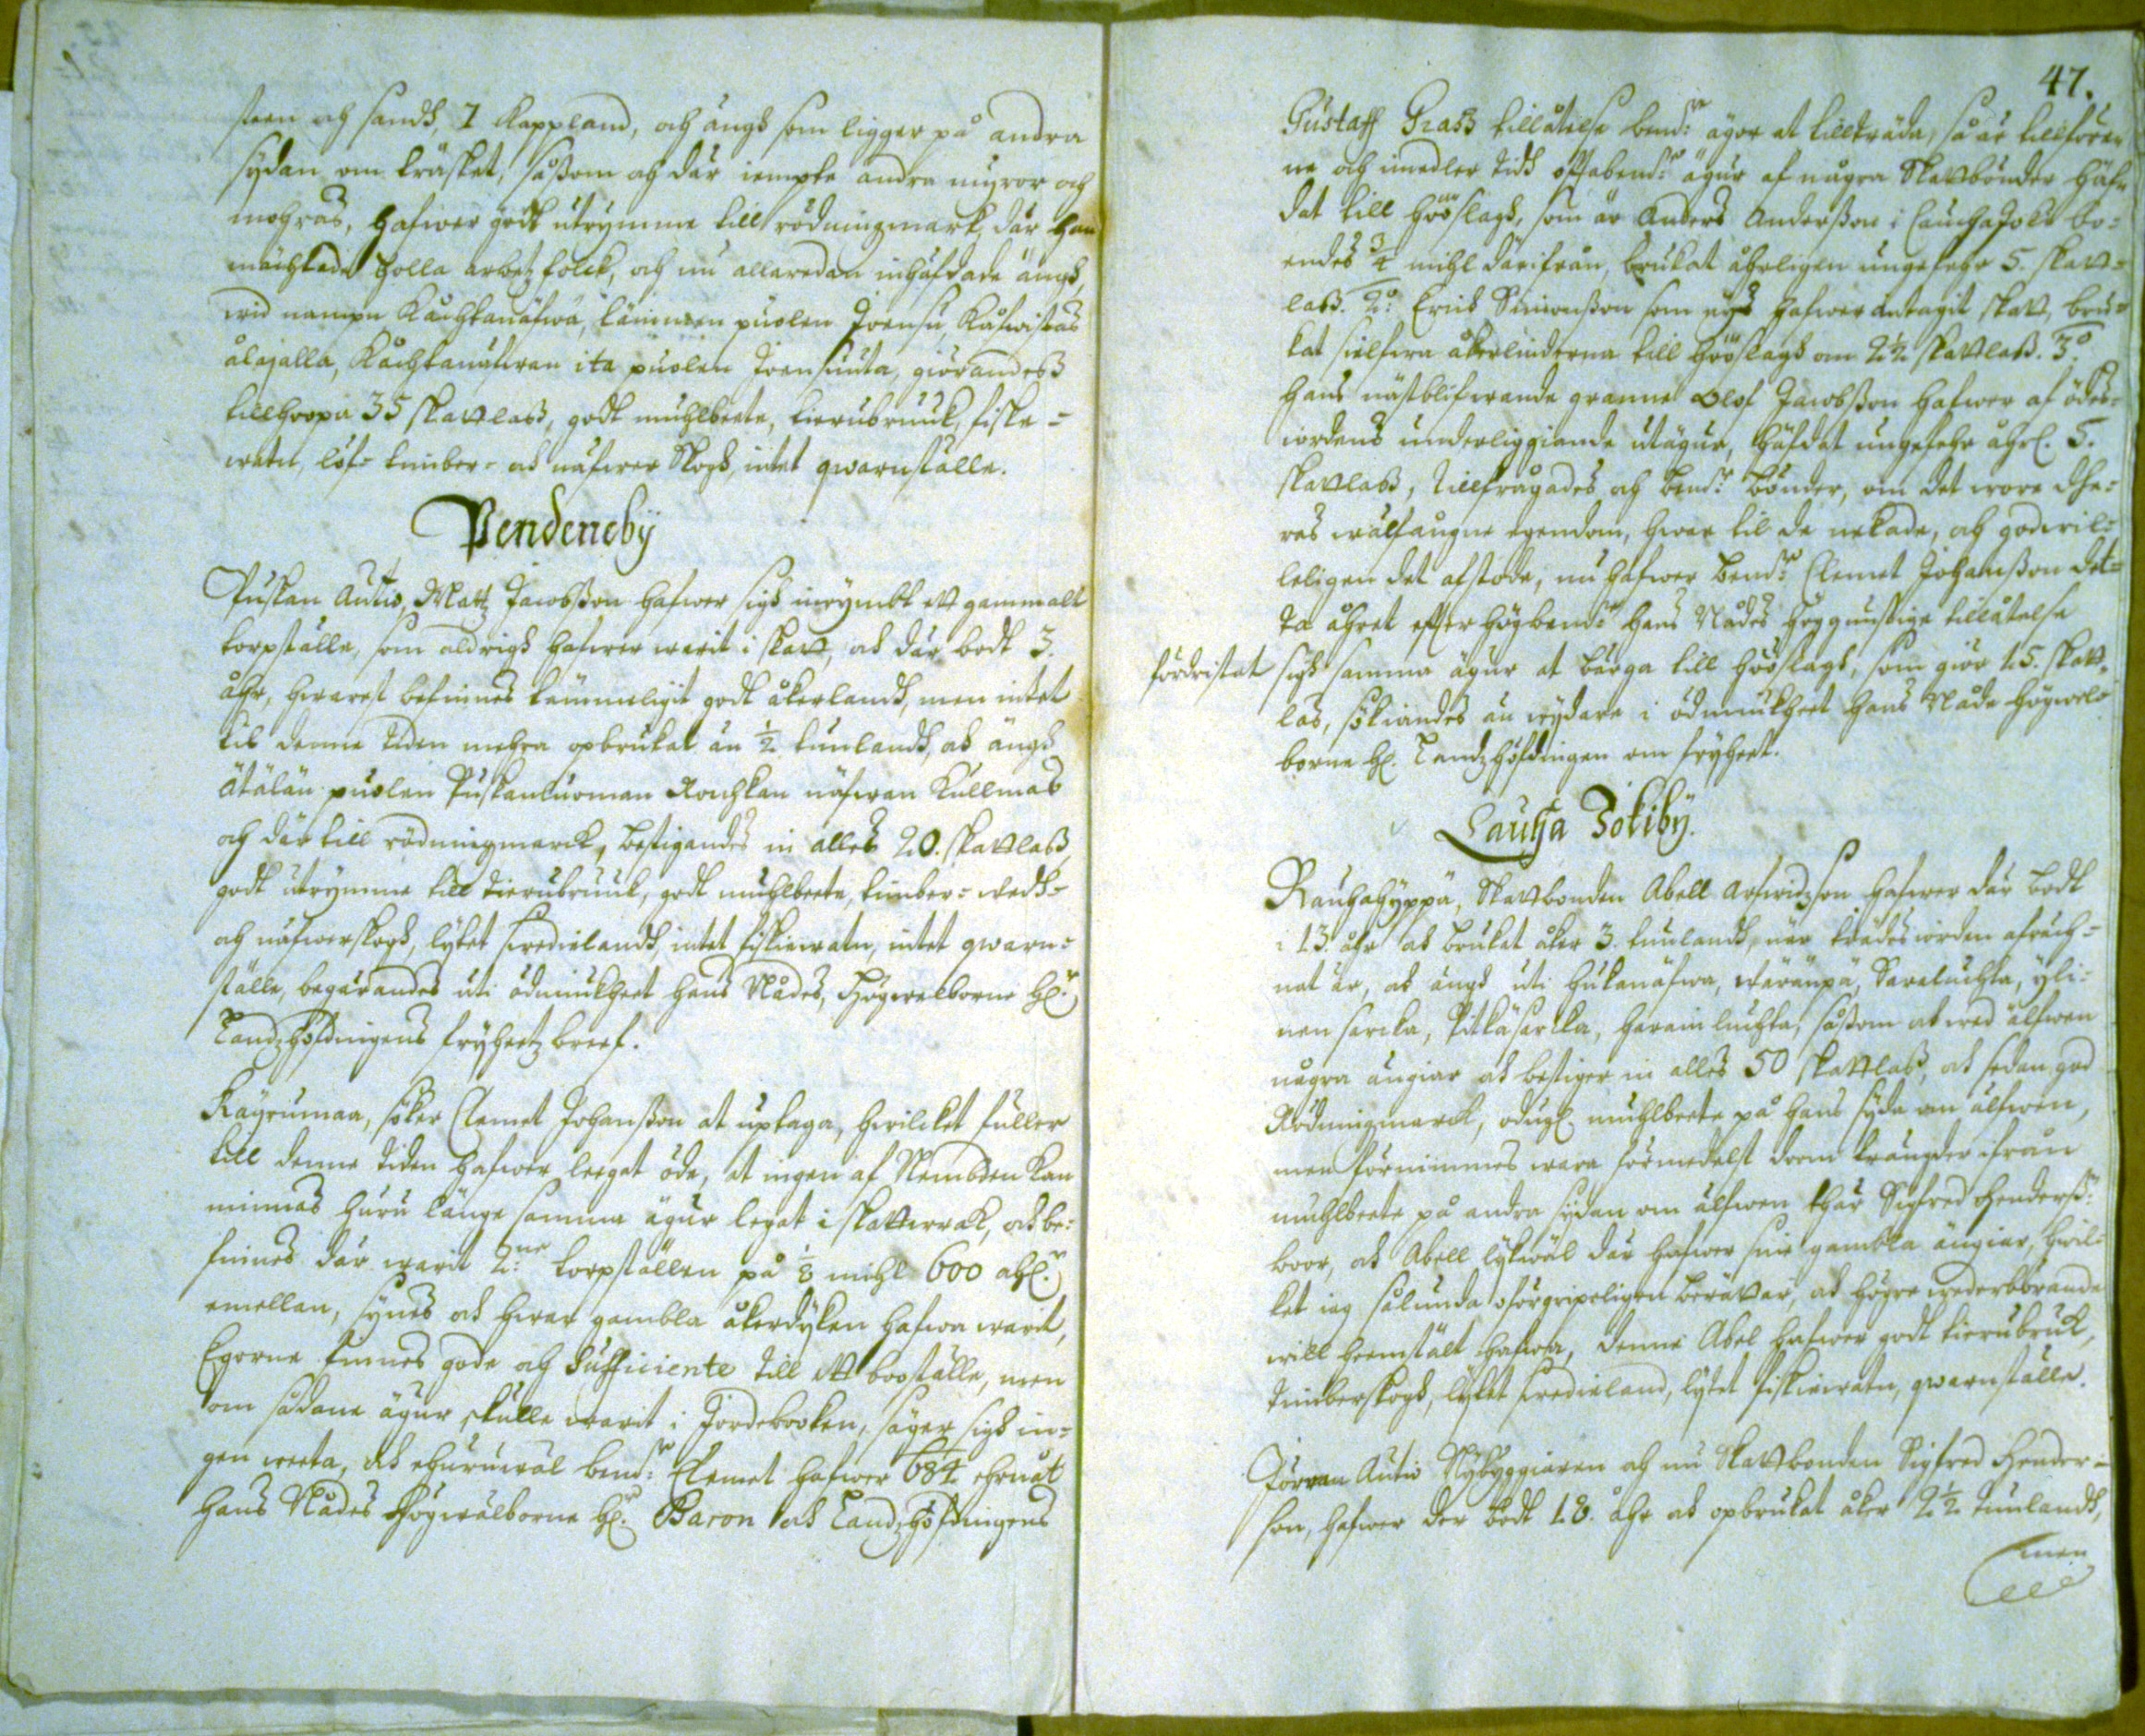 steen och sandh, 1 Kappland, och ängh som ligger på andra
sydan om träsket, såssom och där iempte andra myror och
mohras, hafwer godt utrymme till rödningzmark, där han
mächtade holla arbetzfolck, och nu allaredan inhäfdade ängh,
wid nampn Kåchkanäfwa, puolen Joensu,
ålajalla, Kåchkanäfwan ita puolen Joensuuta, giörandess
tillhoopa 35 skattelass, godt muhlbeete, tierubruuk, fiske-
watn, löf- timber- och näfwer skogh, intet qwarnställe.
Pendeneby
Puskan Autio, Matz Jacobsson hafwer sigh inrymbt ett gammalt
torpställe, som aldrigh hafwer warit i skatt, och där bodt 3.
åhr, hwarest befinnes tämmeligit godt åkerlandh, men intet
til denne tiden mehra opbrukat än ½ tunlandh, och ängh
ätälän puolen Puskanluoman Kochkan näfwan Kullmas
och där till rödningzmarck, bestigandes in alles 20. skattlass,
godt utrymme till tierubruuk, godt muhlbeete, timber- wedh-
och näfwerskogh, lijtet swedielandh, intet fiskiewatn, intet qwarn-
ställe, begärandes uti ödmiukheet Hans Nådes, Högwelborne H:r
Landzhöfdingens frijheetz breef.
Kayrumaa, söker Clemet Johansson at uptaga, hwilcket fuller
till denne tiden hafwer legat öde, at ingen af Nembden kan
minnas huru länge samma ägur legat i skattwrak, och be-
finnes där warit 2:ne torpställen på ⅛ mihl 600 ahl:r
emellan, synes och hwar gambla åkerdyken hafwa warit,
Egorne finnes gode och Sufficiente till ett booställe, men
om sådane ägur skulle warit i Jordebooken, säger sigh in-
gen weeta, och ehuruwäl bem:te Clemet hafwer 684 ehrnåt
Hans Nådes Högwälborne H:r Baron och Landzhöfdingens
47.
Gustaff Grass tillåtelse bem:te ägor at tillträda, så är tillföre-
ne och imedler tidh oftabem:te ägur af några Skattbönder häf-
dat till hööslagh, som är Anders Andersson i Lauchajoki bo-
endes ¾ mihl därifrån, brukat åhrligen ungefehr 5. skatt-
lass. 2:o Erich Simonsson som nys hafwer antagit skatt, bru-
kat sielfwa åkerlinderna till hööslagh om 2½ skattlass. 3:o
hans nästblifwande granne Olof Jacobsson hafwer af ödes-
iordens underliggiande utägur, häfdat ungefehr åhrl. 5.
skattlass, tillfrågades och bem:te bönder, om det wore dhe-
ras wälfångne egendom, hwar til de nekade, och godwil-
leligen det afstode, nu hafwer bem:te Clemet Johansson det-
ta åhret efter högbem:te Hans Nådes höggunstige tillåtelse
fördristat sigh samma ägur at bärga till hööslagh, som giör 15. skatt-
las, sökiandes än wijdare i ödmiukheet Hans Nåde Högwel-
borne H. Landzhöfdingen om frijheet.
Lauha Jokiby.
Rauhahyppä, Skattbonden Abell Arfwidzson hafwer där bodt
i 13. åhr och brukat åker 3. tunlandh, när trädesiorden afräch-
nat är, och ängh uti Hukanäfwa, Wäränpä, Saraluchta, yli-
nen sarcka, Pitkäsarcka, Harain luchta, såssom och wed älfwen
några ängiar och bestiger in alles 50 skattlass, och sedan god
Rödningzmarck, odugl. muhlbeete på hans sijda om älfwen,
men förnimmes wara förmedelst trångder ifrån
muhlbeete på andra sijdan om älfwen thär Sigfred Henderss:
boor, och Abell lijkwäl där hafwer sine gambla ängiar, hwil-
ket iag sålunda oförgripeligen berättar, och högre wederbörande
will heemstält hafwa, denne Abel hafwer godt tierubruk,
timberskogh, lijtet swedieland, lijtet fiskiewatn, qwarnställe.
Jörran Autio Nybyggiaren och nu Skattbonden Sigfred Hender-
son, hafwer der bodt 18. åhr och opbrukat åker 2½ tunlandh,
men